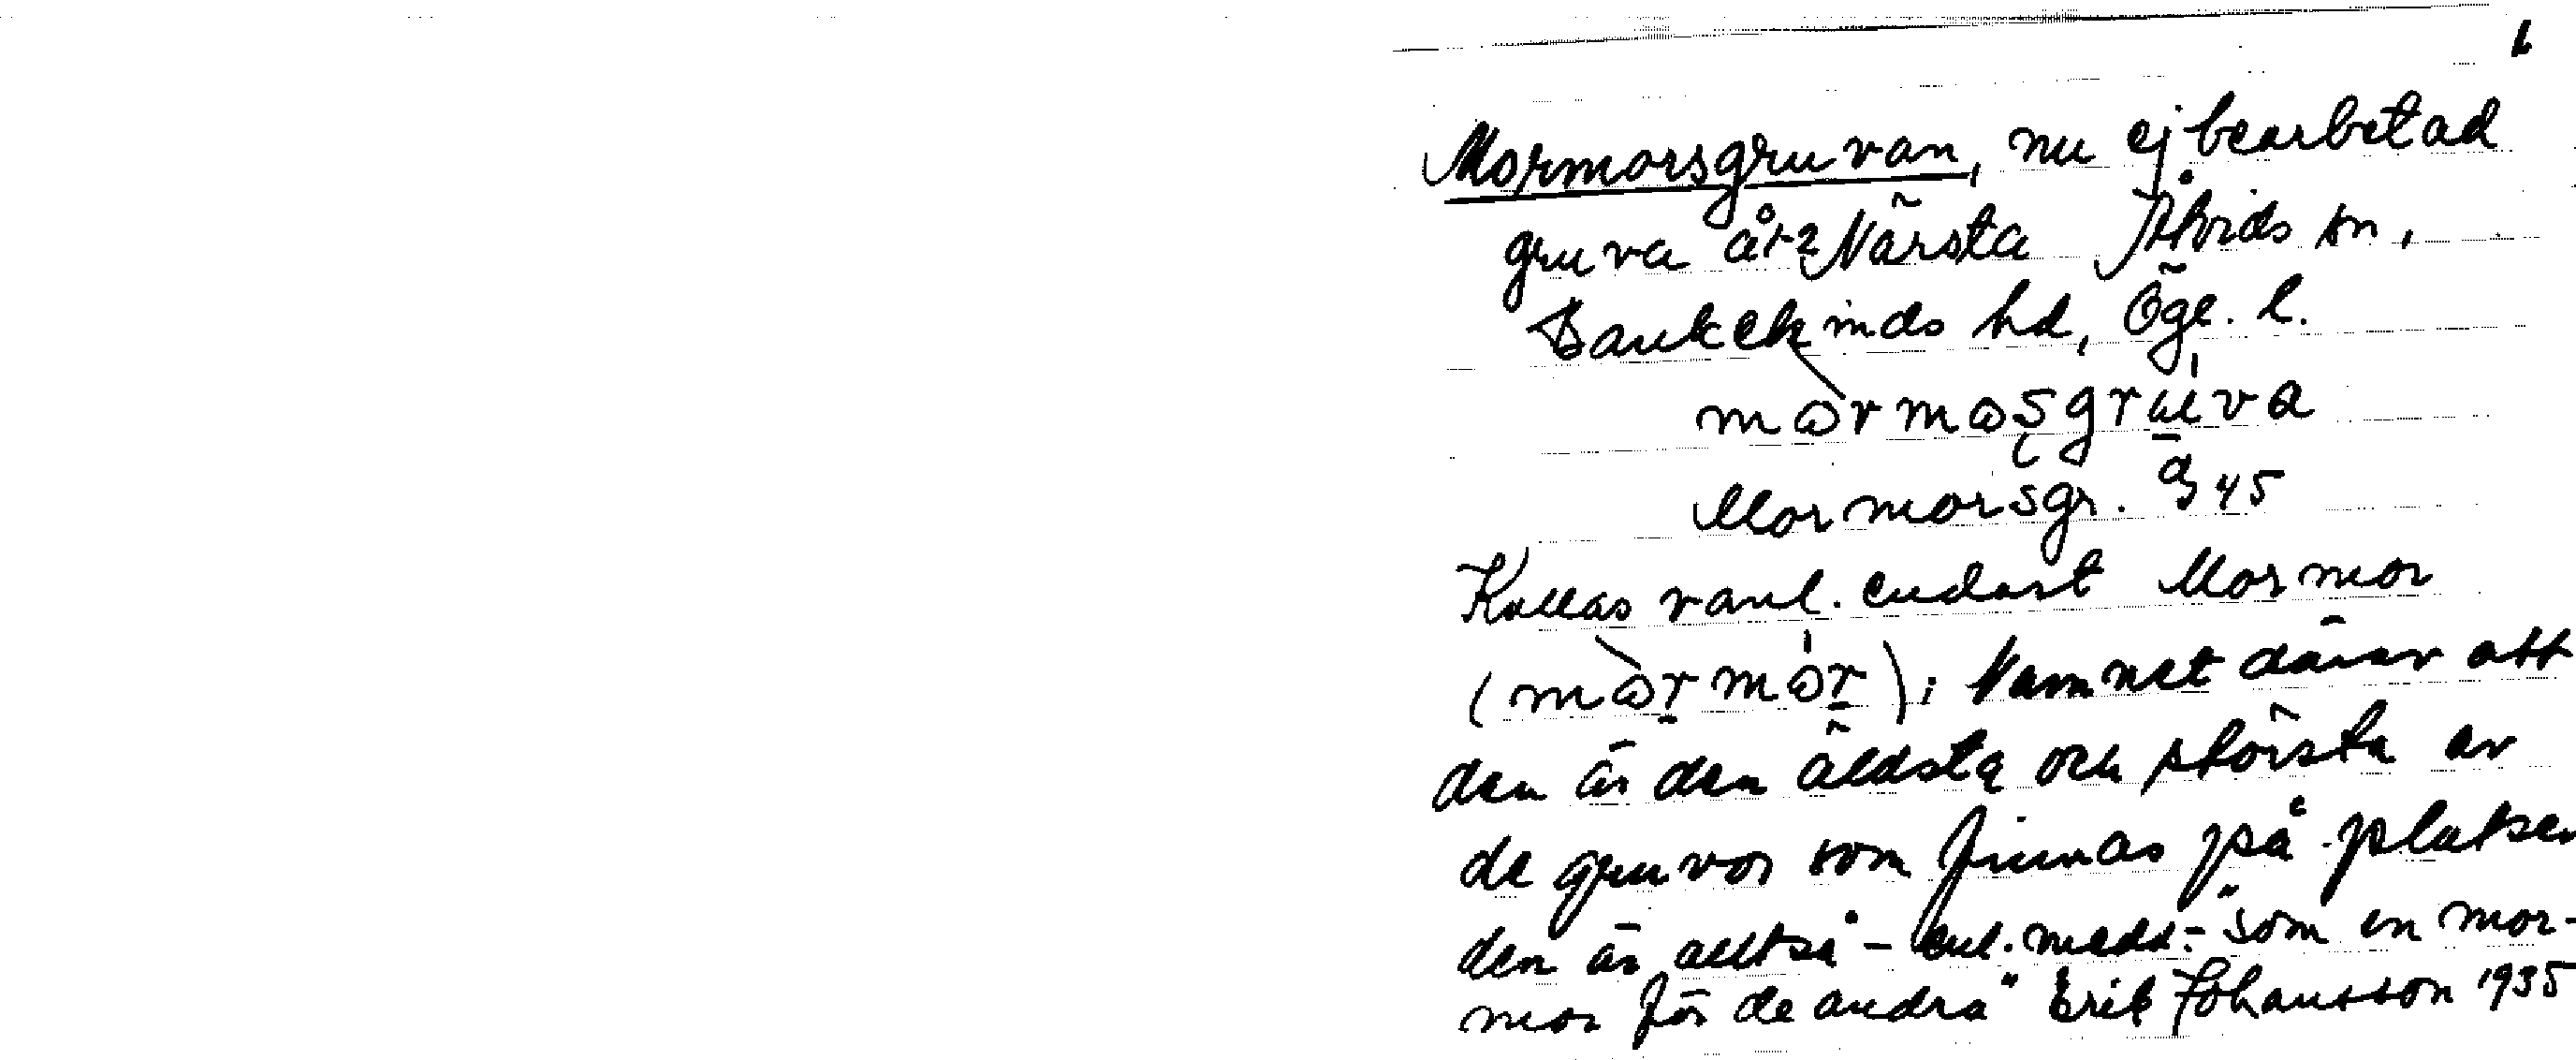 Mormorsgruvan, nu ej bearbetad
gruva å 1/2 Närsta Åtvids sn,
Bankekinds hd, Ögl. l.
mɷrmɷsgruva
Mormorsgr. 45
Kallas vanl. endast Mormor
(mɷrmɷr); Namnet därav att
den är den äldsta och största av
de gruvor som finnas på platsen
den är alltså – enl. medd. – "som en mor-
mor för de andra" Erik Johansson 1935